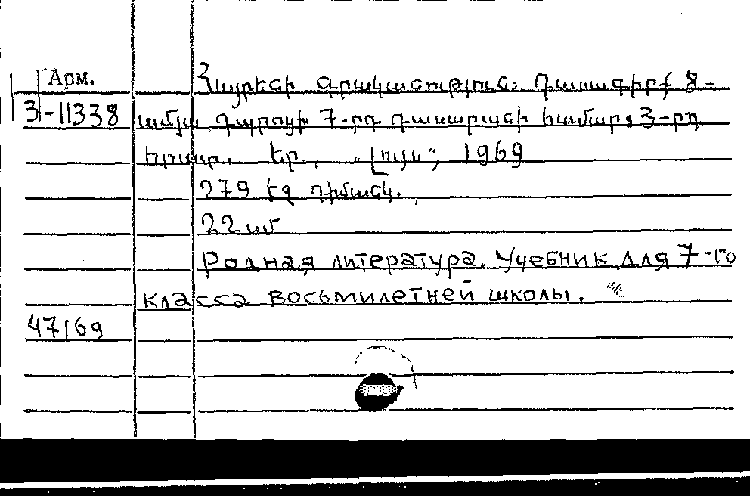 Арм.
3-11338
Հայրենի գրականություն: Դասագիրք 8-
ամյա դպրոցի 7-րդ դասարանի համար: 3-րդ
հրատ. Եր., „Լույս”, 1969
279 էջ դիմանկ.
22 սմ
Родная литература. Учебник для 7-го
класса восьмилетней школы.
47/69